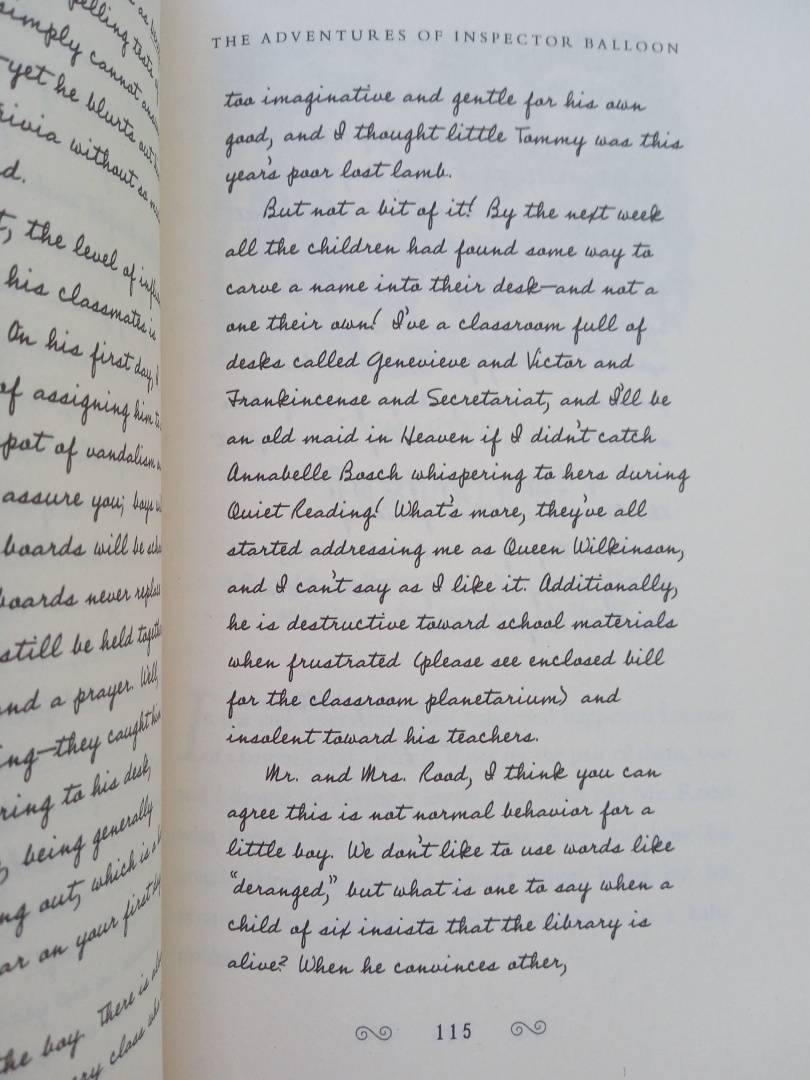 elling tests
simply cannot
yet he blurts out
rivia without so
d.
the level of
his classmates is
On his first day,
of assigning him
of vandalism
assure you; boys
boards will be
boards never
still be held
and a prayer. Well,
they caught
to his desk,
being generally
out, which is
on your first
the boy. There is
class
THE ADVENTURES OF INSPECTOR BALLOON
too imaginative and gentle for his own
good, and I thought little Tommy was this
year's poor lost lamb.
But not a bit of it! By the next week
all the children had found some way to
carve a name into their desk—and not a
one their own! I've a classroom full of
desks called Genevieve and Victor and
Frankincense and Secretariat, and I'll be
an old maid in Heaven if I didn't catch
Annabelle Bosch whispering to hers during
Quiet Reading! What's more, they've all
started addressing me as Queen Wilkinson,
and I can't say as I like it. Additionally,
he is destructive toward school materials
when frustrated (please see enclosed bill
for the classroom planetarium) and
insolent toward his teachers.
Mr. and Mrs. Rood, I think you can
agree this is not normal behavior for a
little boy. We don't like to use words like
"deranged," but what is one to say when a
child of six insists that the library is
alive? When he convinces other,
115